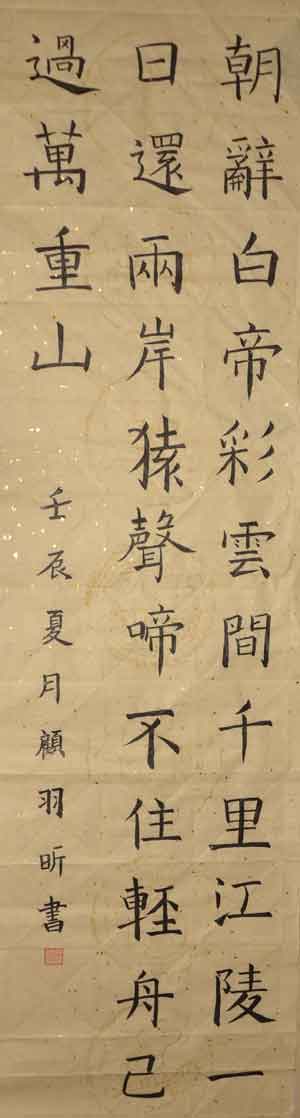 朝辭白帝彩雲間千里江陵一
日還兩岸猿聲啼不住輕舟己
過萬重山
壬辰夏月顧羽昕書